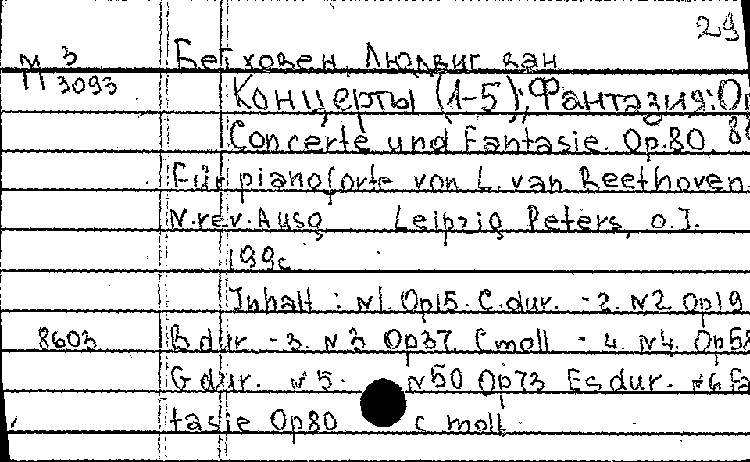 29
М 3
3093
Бетховен, Людвиг ван
Концерты (1-5); Фантазия: Op
Concerte und Fantasie. Op.80.
Für pianoforte von L. van Beethoven
N. rev. Ausg Leipzig Peters, o.J.
199c.
Inhalt: N1. Op15. C.dur. - 2. N2 Op19
8603 B dur - 3. N3 Op37. C moll - 4. N4. Op58
G dur. N5. Op73 Es dur. N6 Fa
tasie Op80 c moll